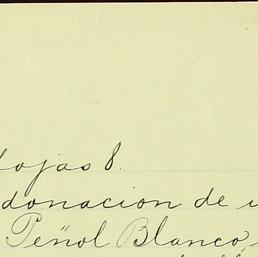 fojas 8.
donacion de u
Peñol Blanco,